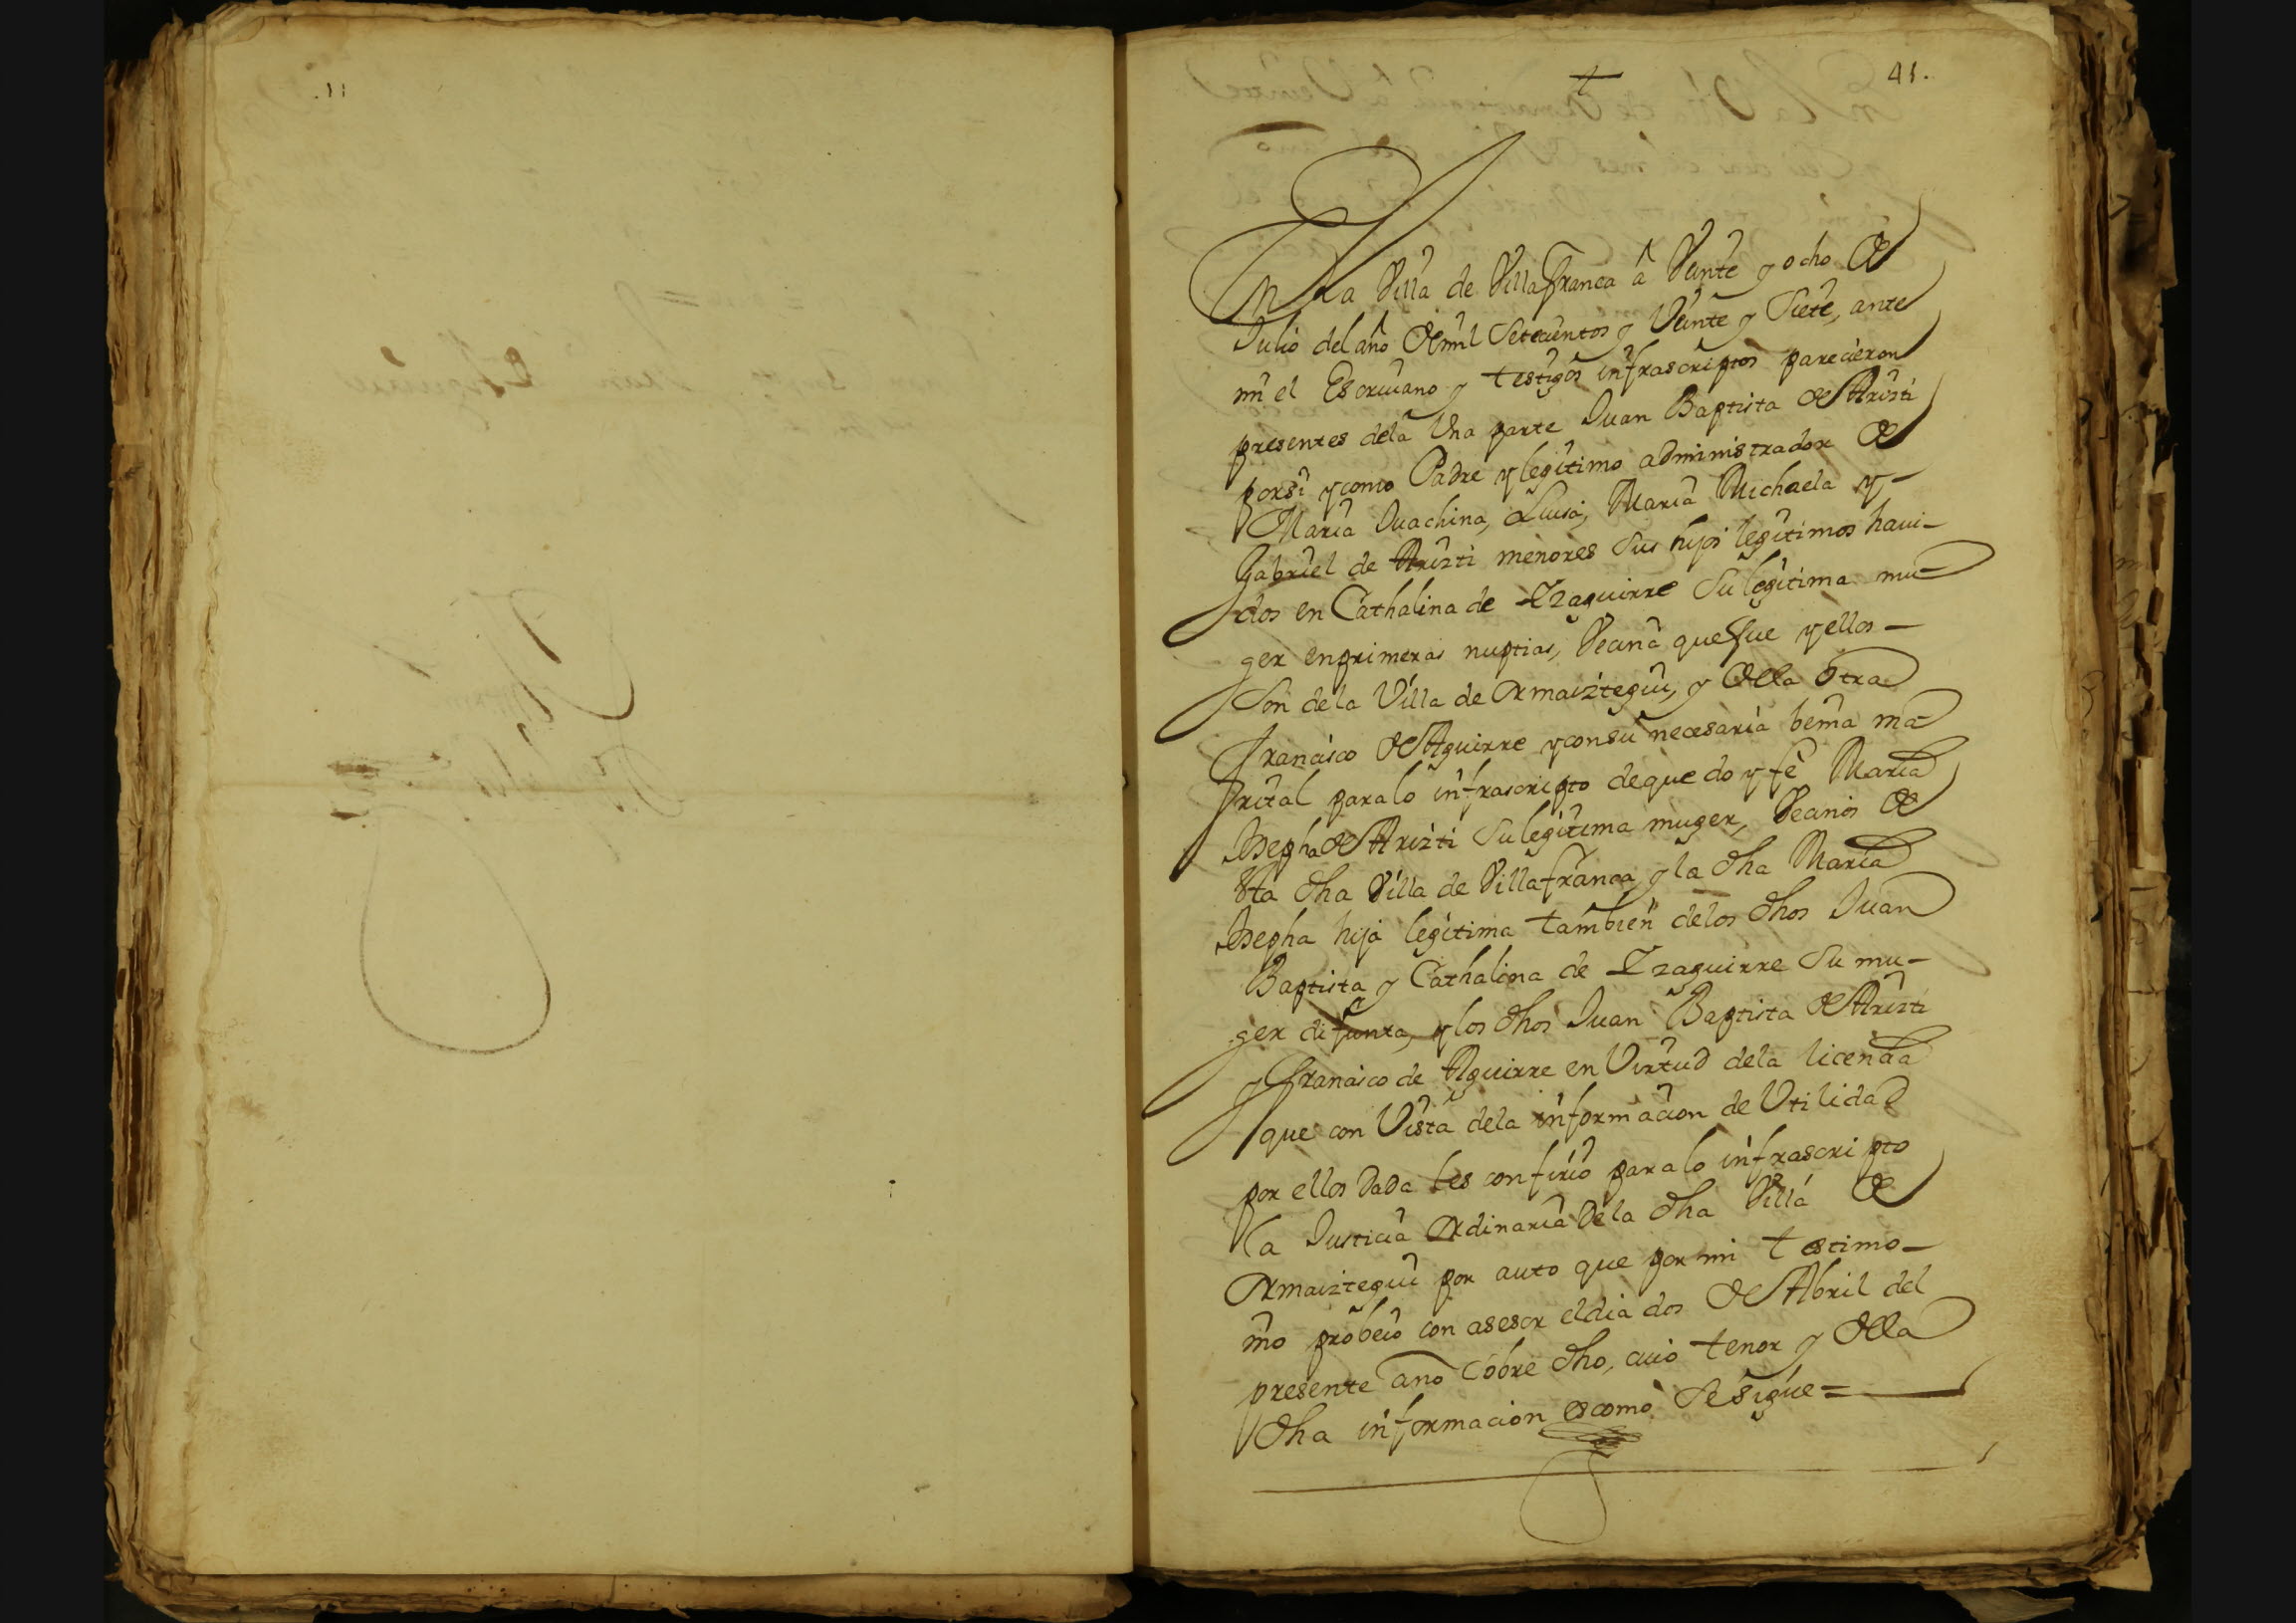 41.
En la Villa de Villafranca â Veinte y ocho de
Julio del año de mil Setecientos y Veinte y Siete, ante
mi el Escriuano y testigos infrascriptos parecieron
presentes dela Una parte Juan Baptista de Arizti
porsi y como Padre y legitimo administrador de
Maria Juachina, Luisa, Maria Michaela y-
Gabriel de Arizti menores sus hijos legitimos haui-
dos en Cathalina de Yzaguirre su legitima mu-
ger enprimeras nuptias, Vecina quefue y ellos-
son dela Villa de Ormaiztegui, y della otra
Francisco de Aguirre y consu necesaria benia ma-
rital paralo infrascripto deque doy fè Maria
Josepha de Arizti su legitima muger, Vecinos de
esta dha Villa de Villafranca y la dha Maria
Josepha hija legitima tambien delos dhos Juan
Baptista y Cathalina de Yzaguirre su mu-
ger difunta, y los dhos Juan Baptista de Arizti
y Francisco de Aguirre en Virtud dela licencia
que con Vista dela informacion de Utilidad
por ellos dada les confirió paralo infrascripto
la Justicia Ordinaria dela dha Villa de
Ormaiztegui por auto que por mi testimo-
nio probeió con asesor eldia dos de Abril del
presente año sobre dho, cuio tenor y della
dha informacion escomo sesigue=